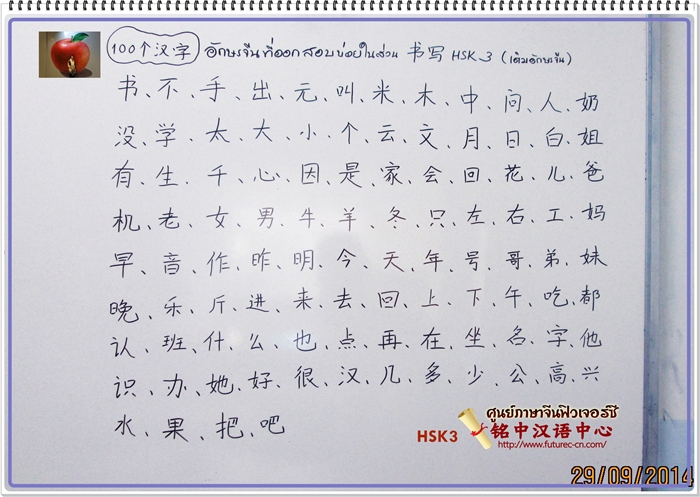 100个汉字 อักษรจีนที่ออกสอบบ่อยในส่วน 书写 HSK 3 (เติมอักษรจีน)
书、不、手、出、元、叫、米、木、中、问、人、奶
没、学、太、大、小、个、云、文、月、日、白、姐
有、生、千、心、因、是、家、会、回、花、儿、爸
机、老、女、男、牛、羊、冬、只、左、右、工、妈
早、音、作、昨、明、今、天、年、号、哥、弟、妹
晚、乐、斤、进、来、去、回、上、下、午、吃、都
认、班、什、么、也、点、再、在、坐、名、字、他
识、办、她、好、很、汉、几、多、少、公、高、兴
水、果、把、吧
HSK3
ศูนย์ภาษาจีนฟิวเจอร์ซี
铭中汉语中心
http://www.futurec-cn.com/
29/09/2014